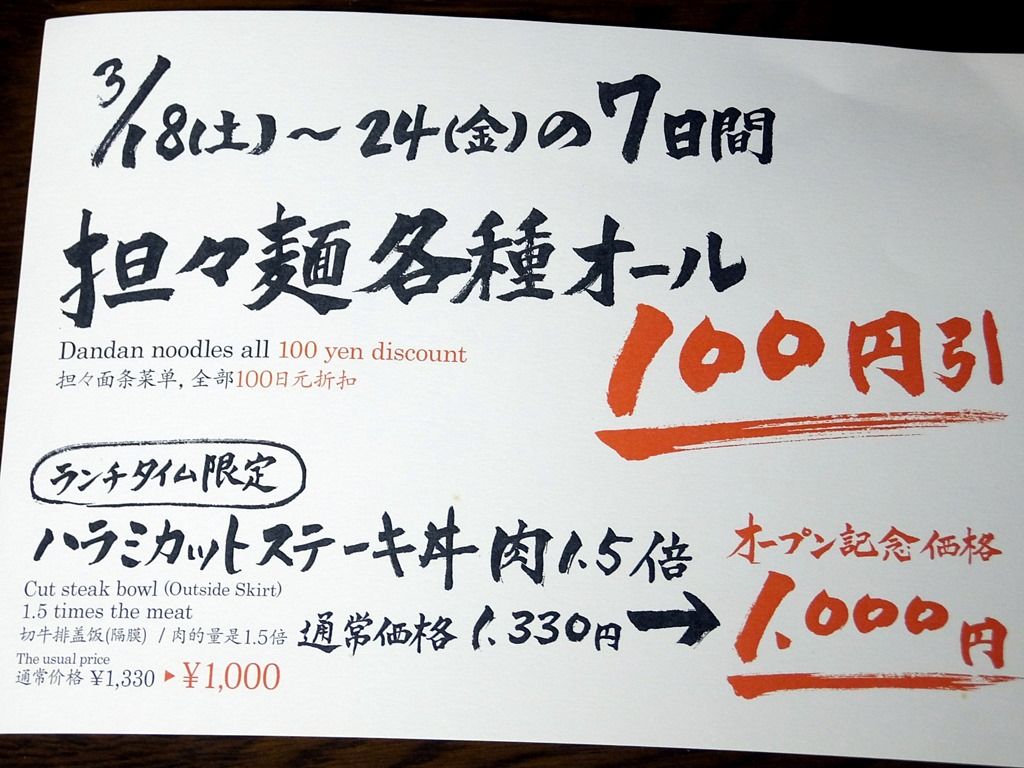 3/18(土)～24(金)の7日間
担々麺各種オール
100円引
Dandan noodles all 100 yen discount
担々面条菜单, 全部100日元折扣
ランチタイム限定
ハラミカットステーキ丼 肉1.5倍
オープン記念価格
Cut steak bowl (Outside Skirt)
1.5 times the meat
切牛排盖饭(隔膜) / 肉的量是1.5倍
通常価格 1.330円→
1.000円
The usual price
通常价格 ¥1,330 ▶ ¥1,000